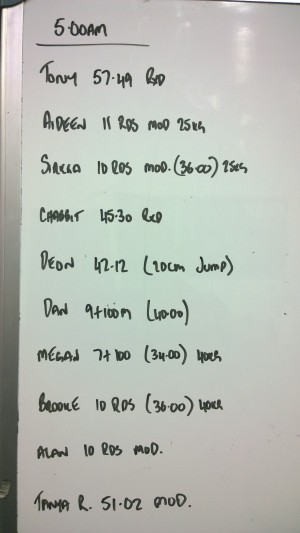 5:00AM
Tony 57.49 RXD
AIDEEN 11 RDS MOD 25KG
10 RDS MOD. (36:00) 25KG
CHABBIT 45.30 RXD
DEON 42.12 (20cm Jump)
DAN 9+100m (40:00)
MEGAN 7+100 (34:00) 40KG
BROOKE 10 RDS (36:00) 40KG
ALAN 10 RDS MOD.
TANYA R. 51.02 MOD.